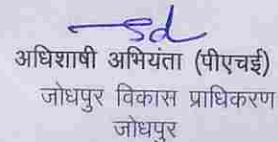 sd
अधिशाषी अभियंता (पीएचई)
जोधपुर विकास प्राधिकरण
जोधपुर